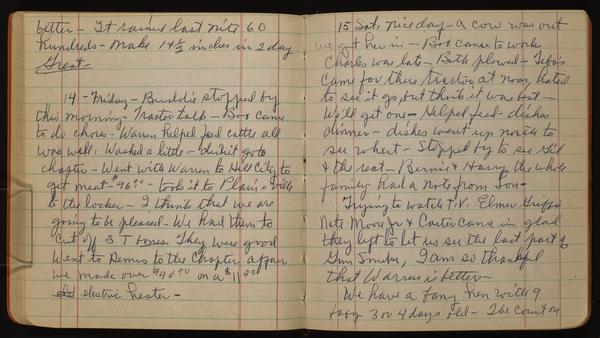 better - It rained last nite 60
hundreds - make 14½ inches in 2 day
Great -
14 - Friday - Buddie stopped by
this morning. Tractor talk - Boo came
to do chores - Warren helped feed cattle all
was well. Washed a little - didn't go to
chapter - Went with Warren to Hill City to
get meat - $96.00 - took it to Plain
to the locker - I think that we are
going to be pleased - We had them to
cut off 3 T bones. They were good
Went to Demus to the Chapter affair
we made over $90.00 on a $11.20
electric heater -
15 Sat, nice day - A cow was out
we got her in - Boo came to work
Charles was late - Both plowed -
came for there tractor at noon, hated
to see it go, but think it was best -
We'll get one - Helped feed - dishes
dinner - dishes went up north to
see wheat - Stopped by to see Gil
& the rest - Bernie & Harry the whole
family had a note from Son -
Trying to watch T.V. Elmer
Nate Moore Jr & Carter came in glad
they left to let us see the last part of
Gun Smoke, I am so thankful
that Warren is better -
We have a bany hen with 9
3 or 4 days old - The count on